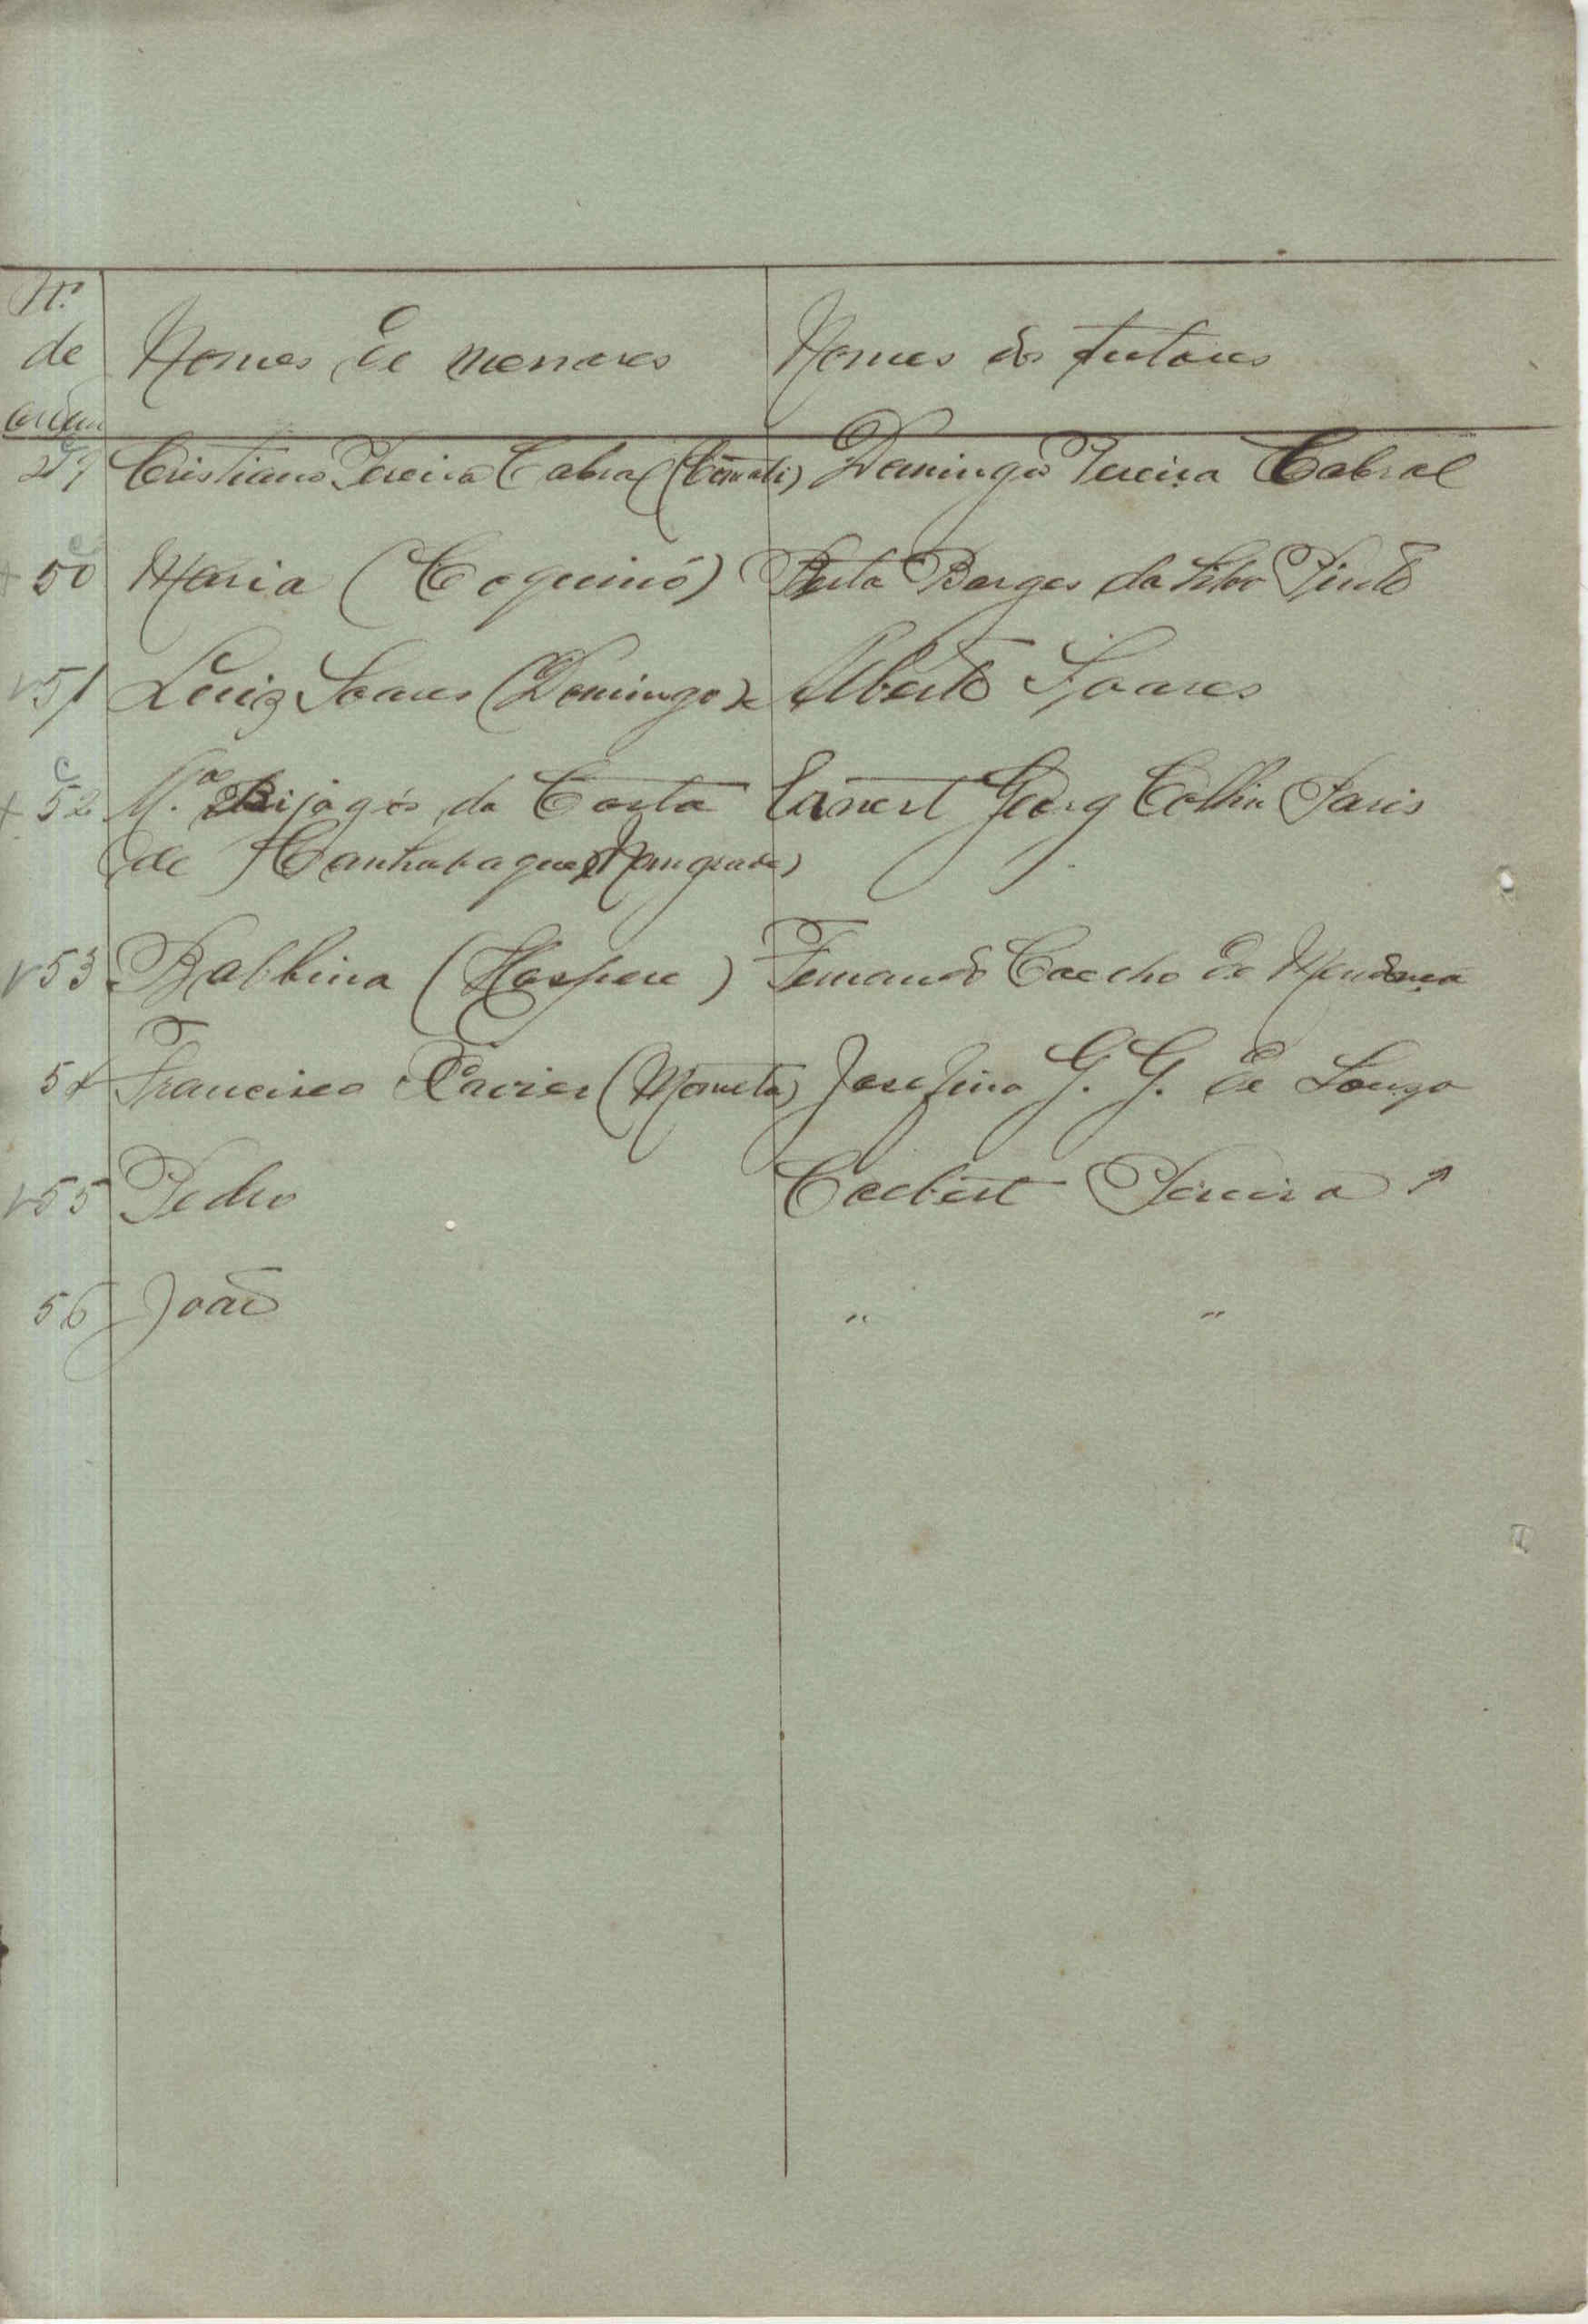 Nº
de
ordem
Nomes de menores
Nomes dos tutores
49 Cristiano Pereira Cabral Domingos Pereira Cabral
50 Maria (Coquinó) Berta Borges da Silva Pinto
51 Luiz Soares (Domingos) Alberto Soares
52 M.ª Bijagós da Costa Ernest Georg Collin Paris
de Canhabaque
53 Balbina Fernando Coelho de Mendonça
54 Francisco Xavier Josefina G. G. de Souza
55 Pedro Pereira
56 João " "